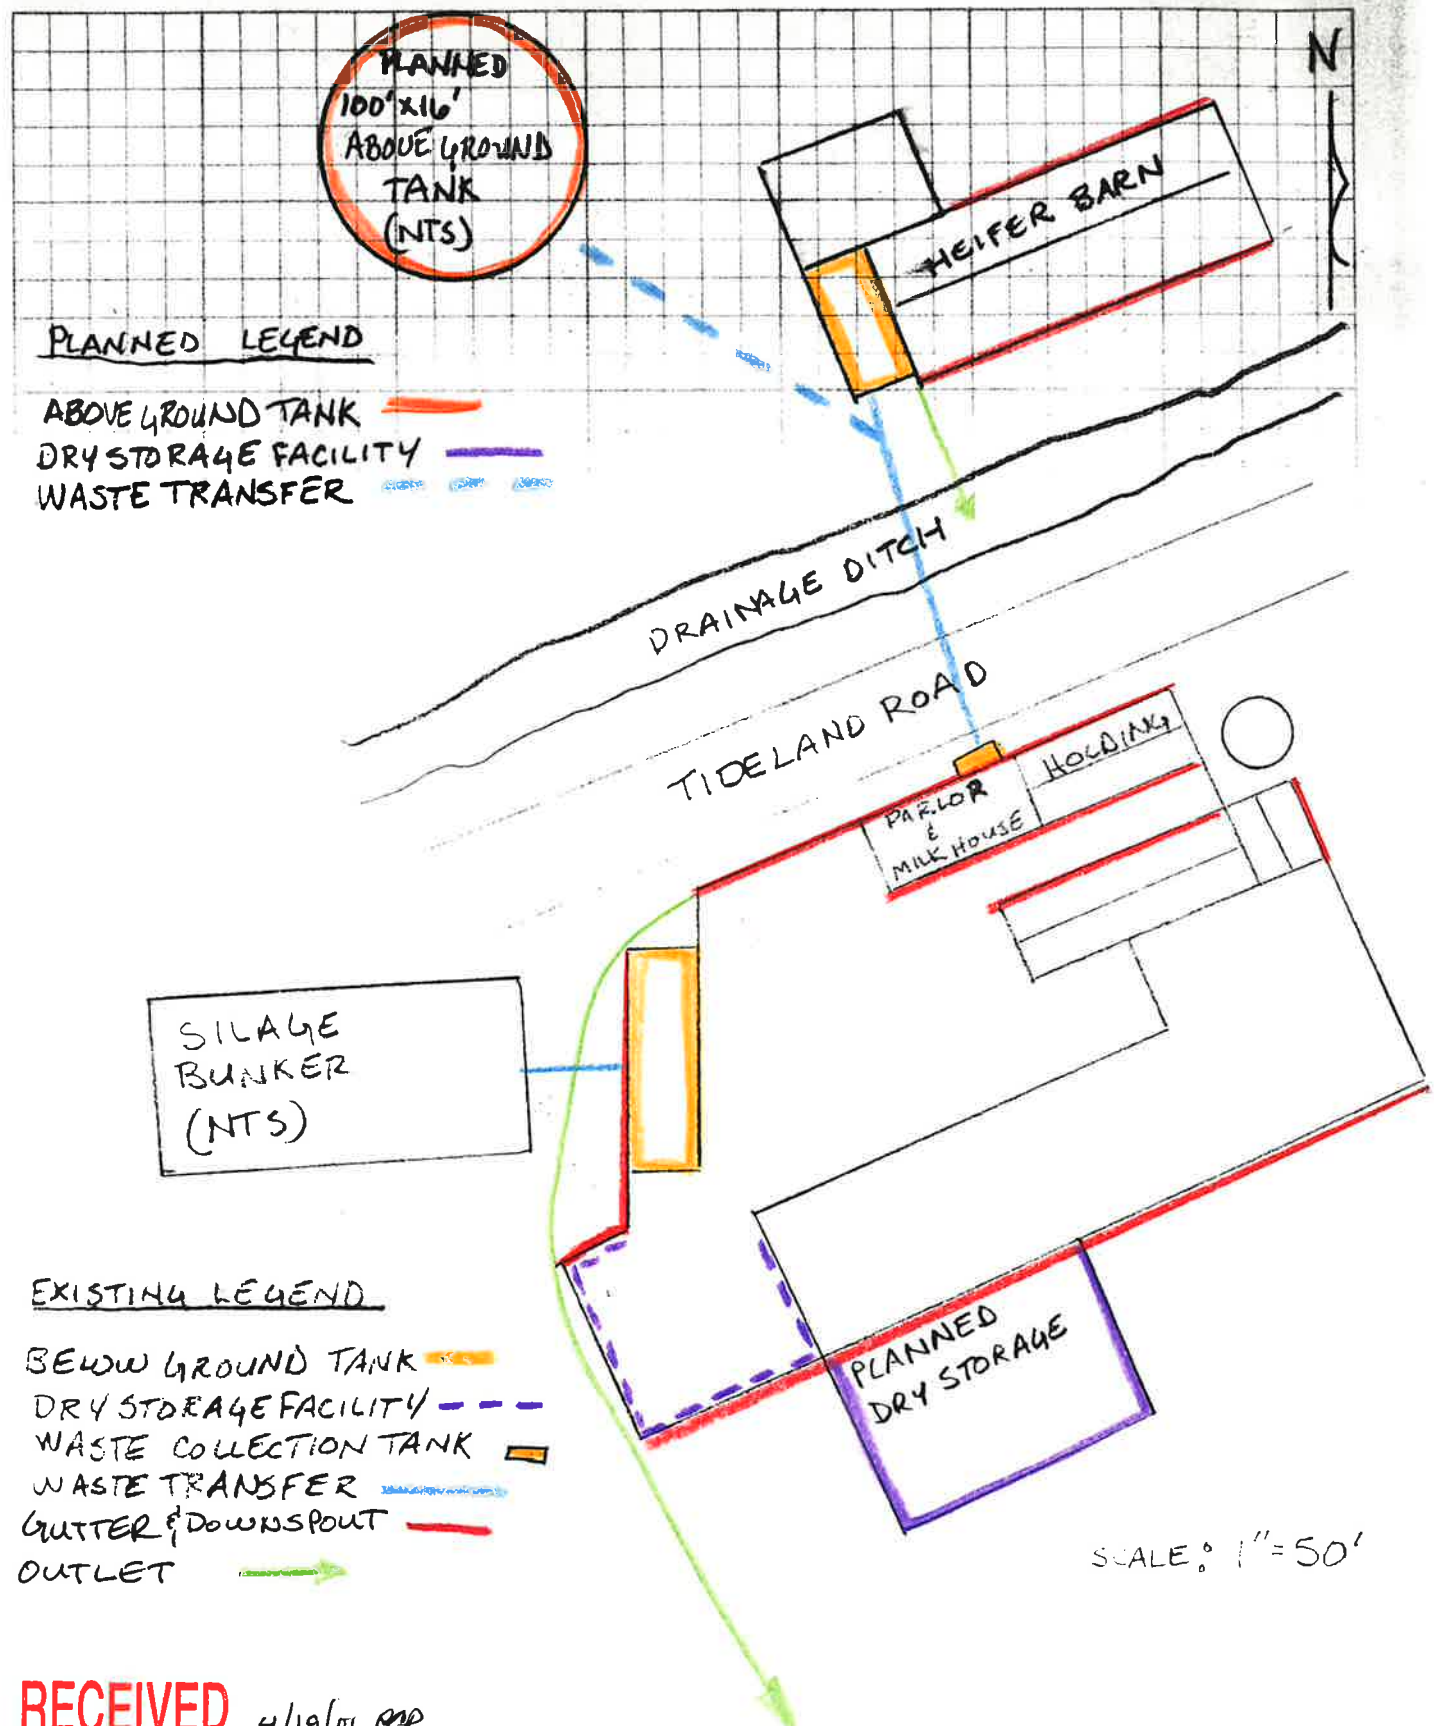 N
PLANNED
100'x16'
ABOVE GROUND
TANK
(NTS)
HEIFER BARN
PLANNED LEGEND
ABOVE GROUND TANK
DRY STORAGE FACILITY
WASTE TRANSFER
DRAINAGE DITCH
TIDELAND ROAD
HOLDING
PARLOR
&
MILK HOUSE
SILAGE
BUNKER
(NTS)
EXISTING LEGEND
BELOW GROUND TANK
DRY STORAGE FACILITY
WASTE COLLECTION TANK
WASTE TRANSFER
GUTTER & DOWNSPOUT
OUTLET
PLANNED
DRY STORAGE
SCALE: 1"=50'
RECEIVED